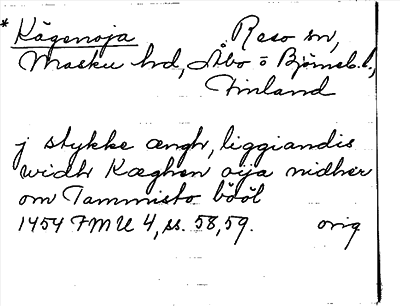 * Kägenoja Reso sn,
Masku hd, Åbo o Björneb. l.,
Finland
j stykke ængh, liggiandis
widh Kæghen oija nidher
om Tammisto bööl
1454 FMU 4, ss. 58, 59. orig